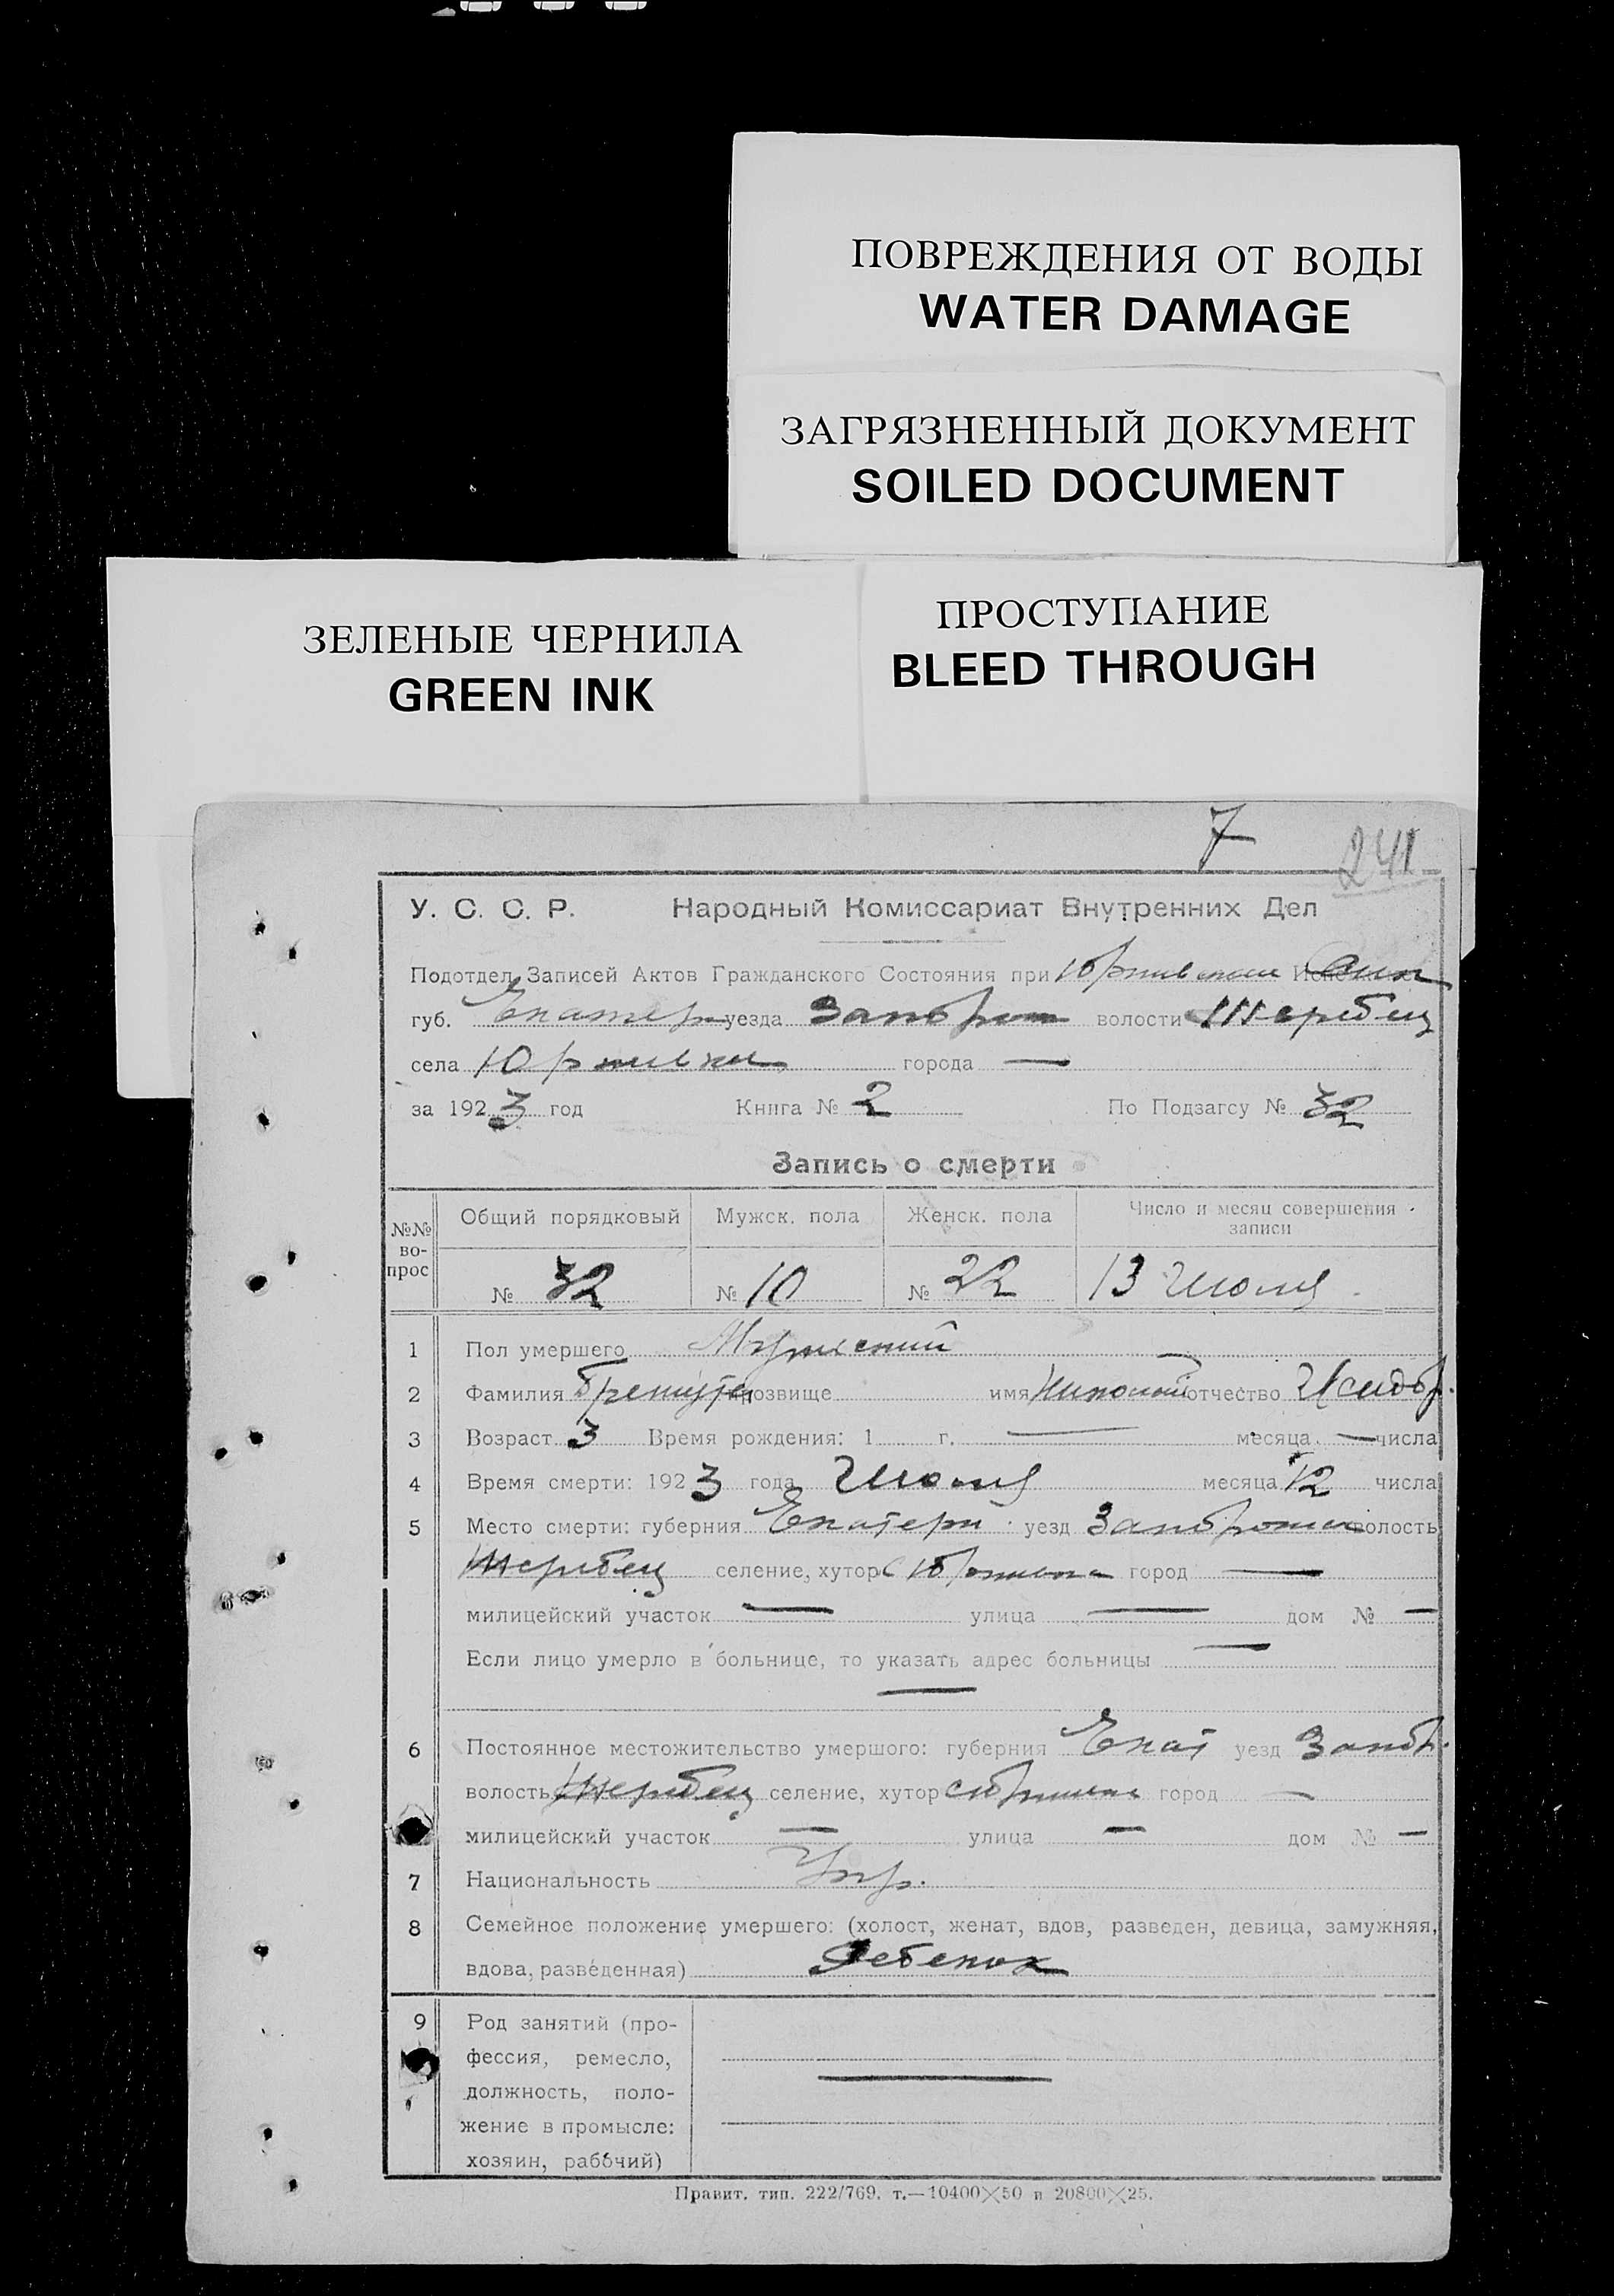 ПОВРЕЖДЕНИЯ ОТ ВОДЫ
WATER DAMAGE
ЗАГРЯЗНЕННЫЙ ДОКУМЕНТ
SOILED DOCUMENT
ЗЕЛЕНЫЕ ЧЕРНИЛА
GREEN INK
ПРОСТУПАНИЕ
BLEED THROUGH
7
241
У. С. С. Р. Народный Комиссариат Внутренних Дел
Подотдел Записей Актов Гражданского Состояния при
губ. Екатер уезда волости
села города —
за 1923 год Книга № 2 По Подзагсу № 32
Запись о смерти
№№ вопрос Общий порядковый Мужск. пола Женск. пола Число и месяц совершения записи
№ 32 № 10 № 22 13 Июля
1 Пол умершего Мужской
2 Фамилия прозвище имя Николай отчество Исидор.
3 Возраст 3 Время рождения: 1 г. — месяца — числа
4 Время смерти: 1923 года Июля месяца 12 числа
5 Место смерти: губерния Екатерн уезд волость
селение, хутор город —
милицейский участок — улица — дом № —
Если лицо умерло в больнице, то указать адрес больницы —
—
6 Постоянное местожительство умершого: губерния Екат уезд
волость селение, хутор город —
милицейский участок — улица — дом № —
7 Национальность Укр.
8 Семейное положение умершего: (холост, женат, вдов, разведен, девица, замужняя,
вдова, разведенная) Ребенок
9 Род занятий (про-
фессия, ремесло,
должность, поло-
жение в промысле:
хозяин, рабочий)
Правит. тип. 222/769. т.—10400×50 и 20800×25.